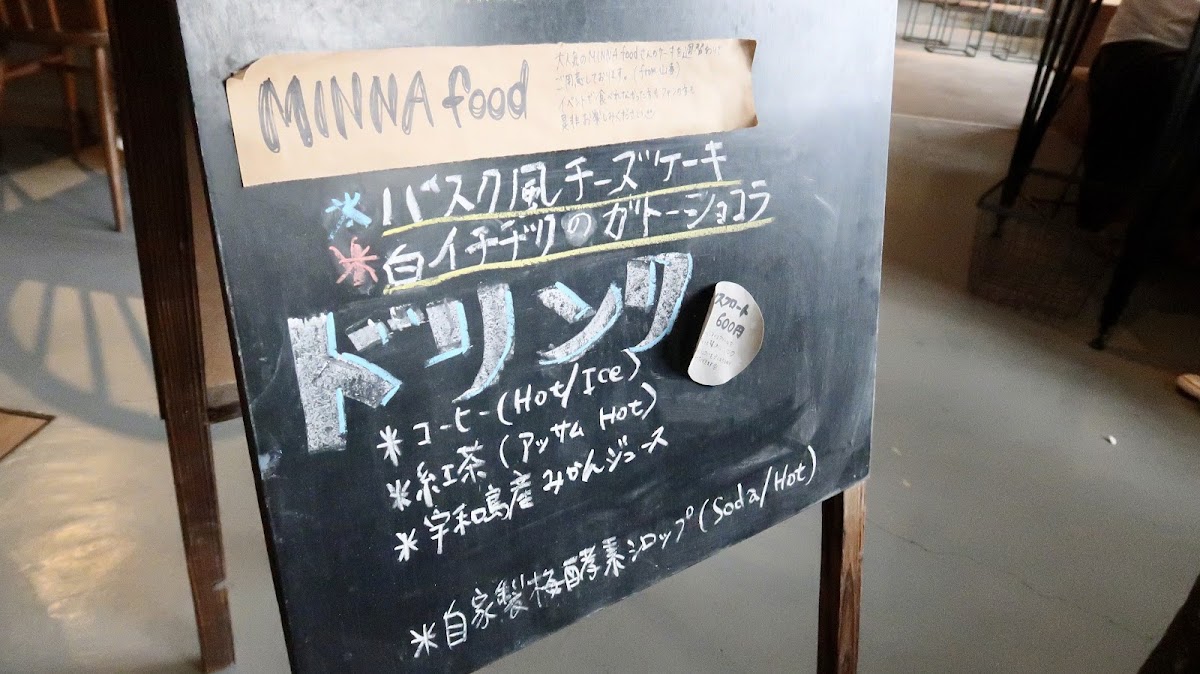 MINNA food
大人気のMINNA foodさんのケーキを週替わりで
ご用意しております。(from 山口)
是非お楽しみください
* バスク風チーズケーキ
* 白イチヂクのガトーショコラ
ドリンク
600円
* コーヒー(Hot/Ice)
* 紅茶(アッサム Hot)
* 宇和島産みかんジュース
* 自家製梅酵素シロップ(Soda/Hot)